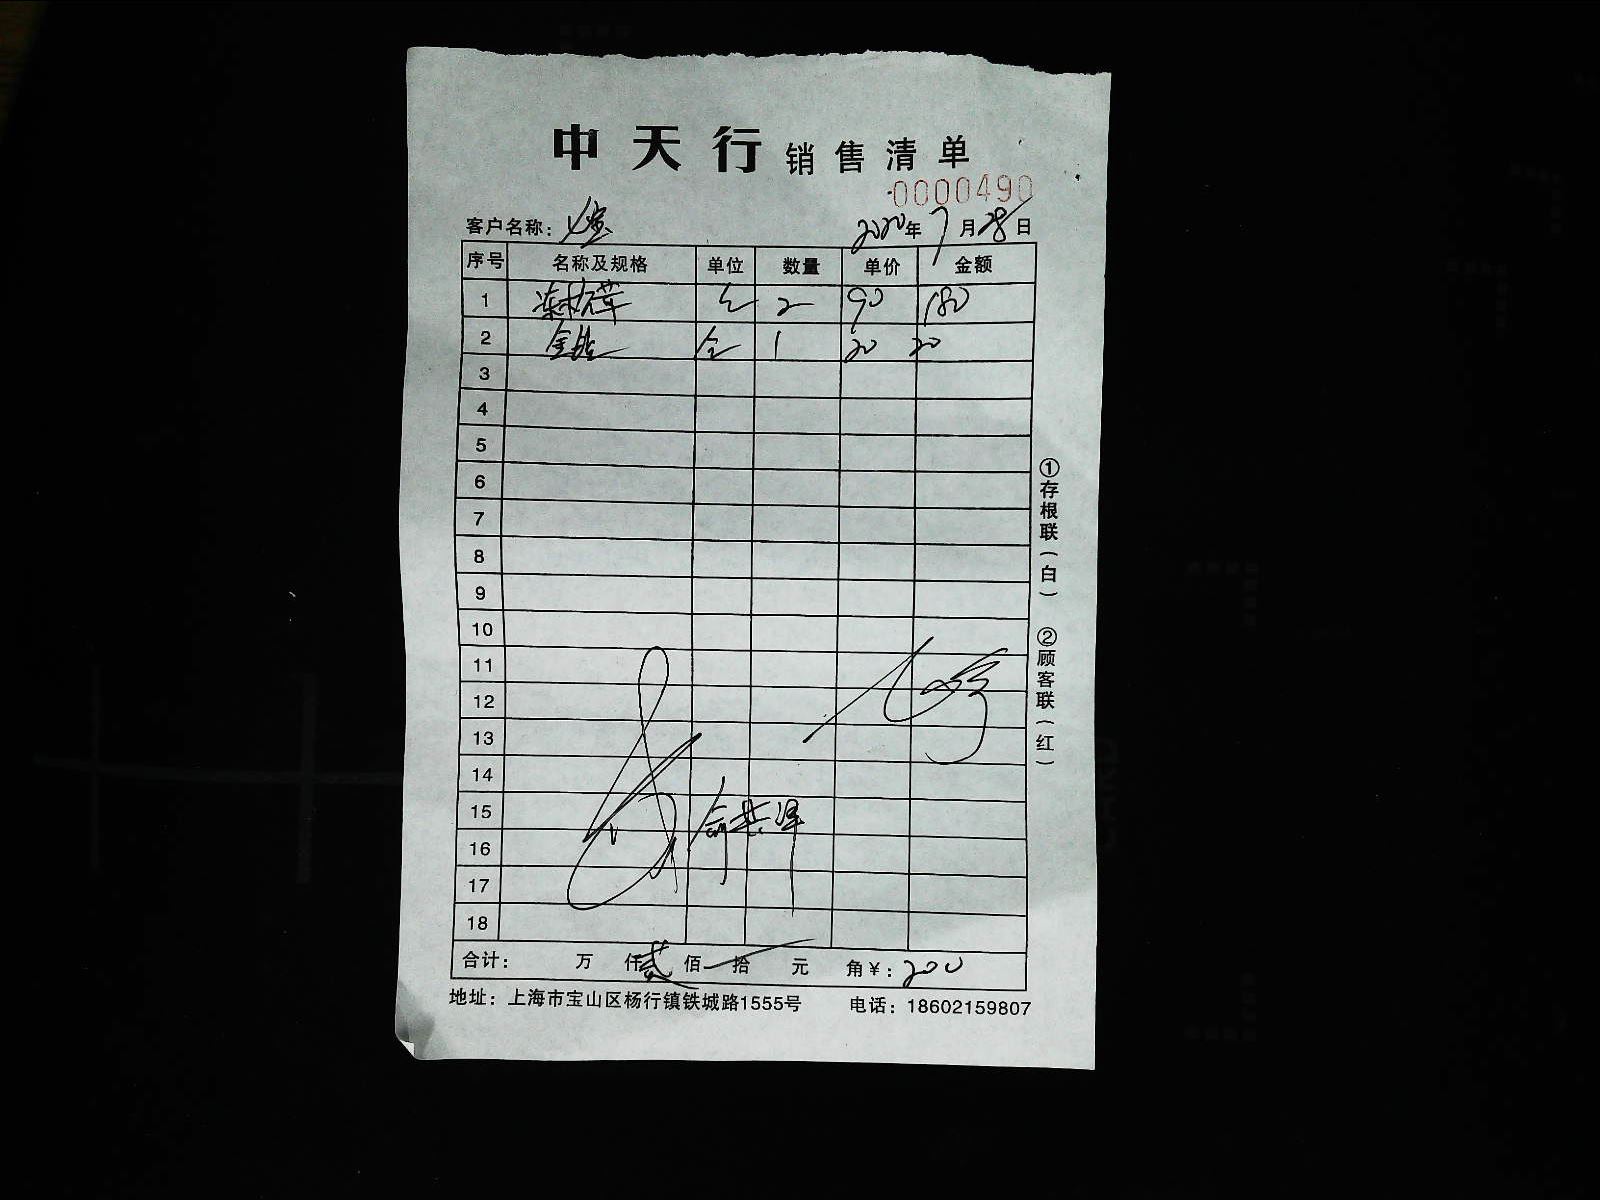 中天行 销售清单
0000490
客户名称: 2020年7月28日
序号 名称及规格 单位 数量 单价 金额
1 2 90 180
2 1 20 20
3
4
5
6
7
8
9
10
11
12
13
14
15
16
17
18
合计: 万 仟贰佰 拾 元 角¥:200
地址:上海市宝山区杨行镇铁城路1555号 电话:18602159807
①存根联(白) ②顾客联(红)